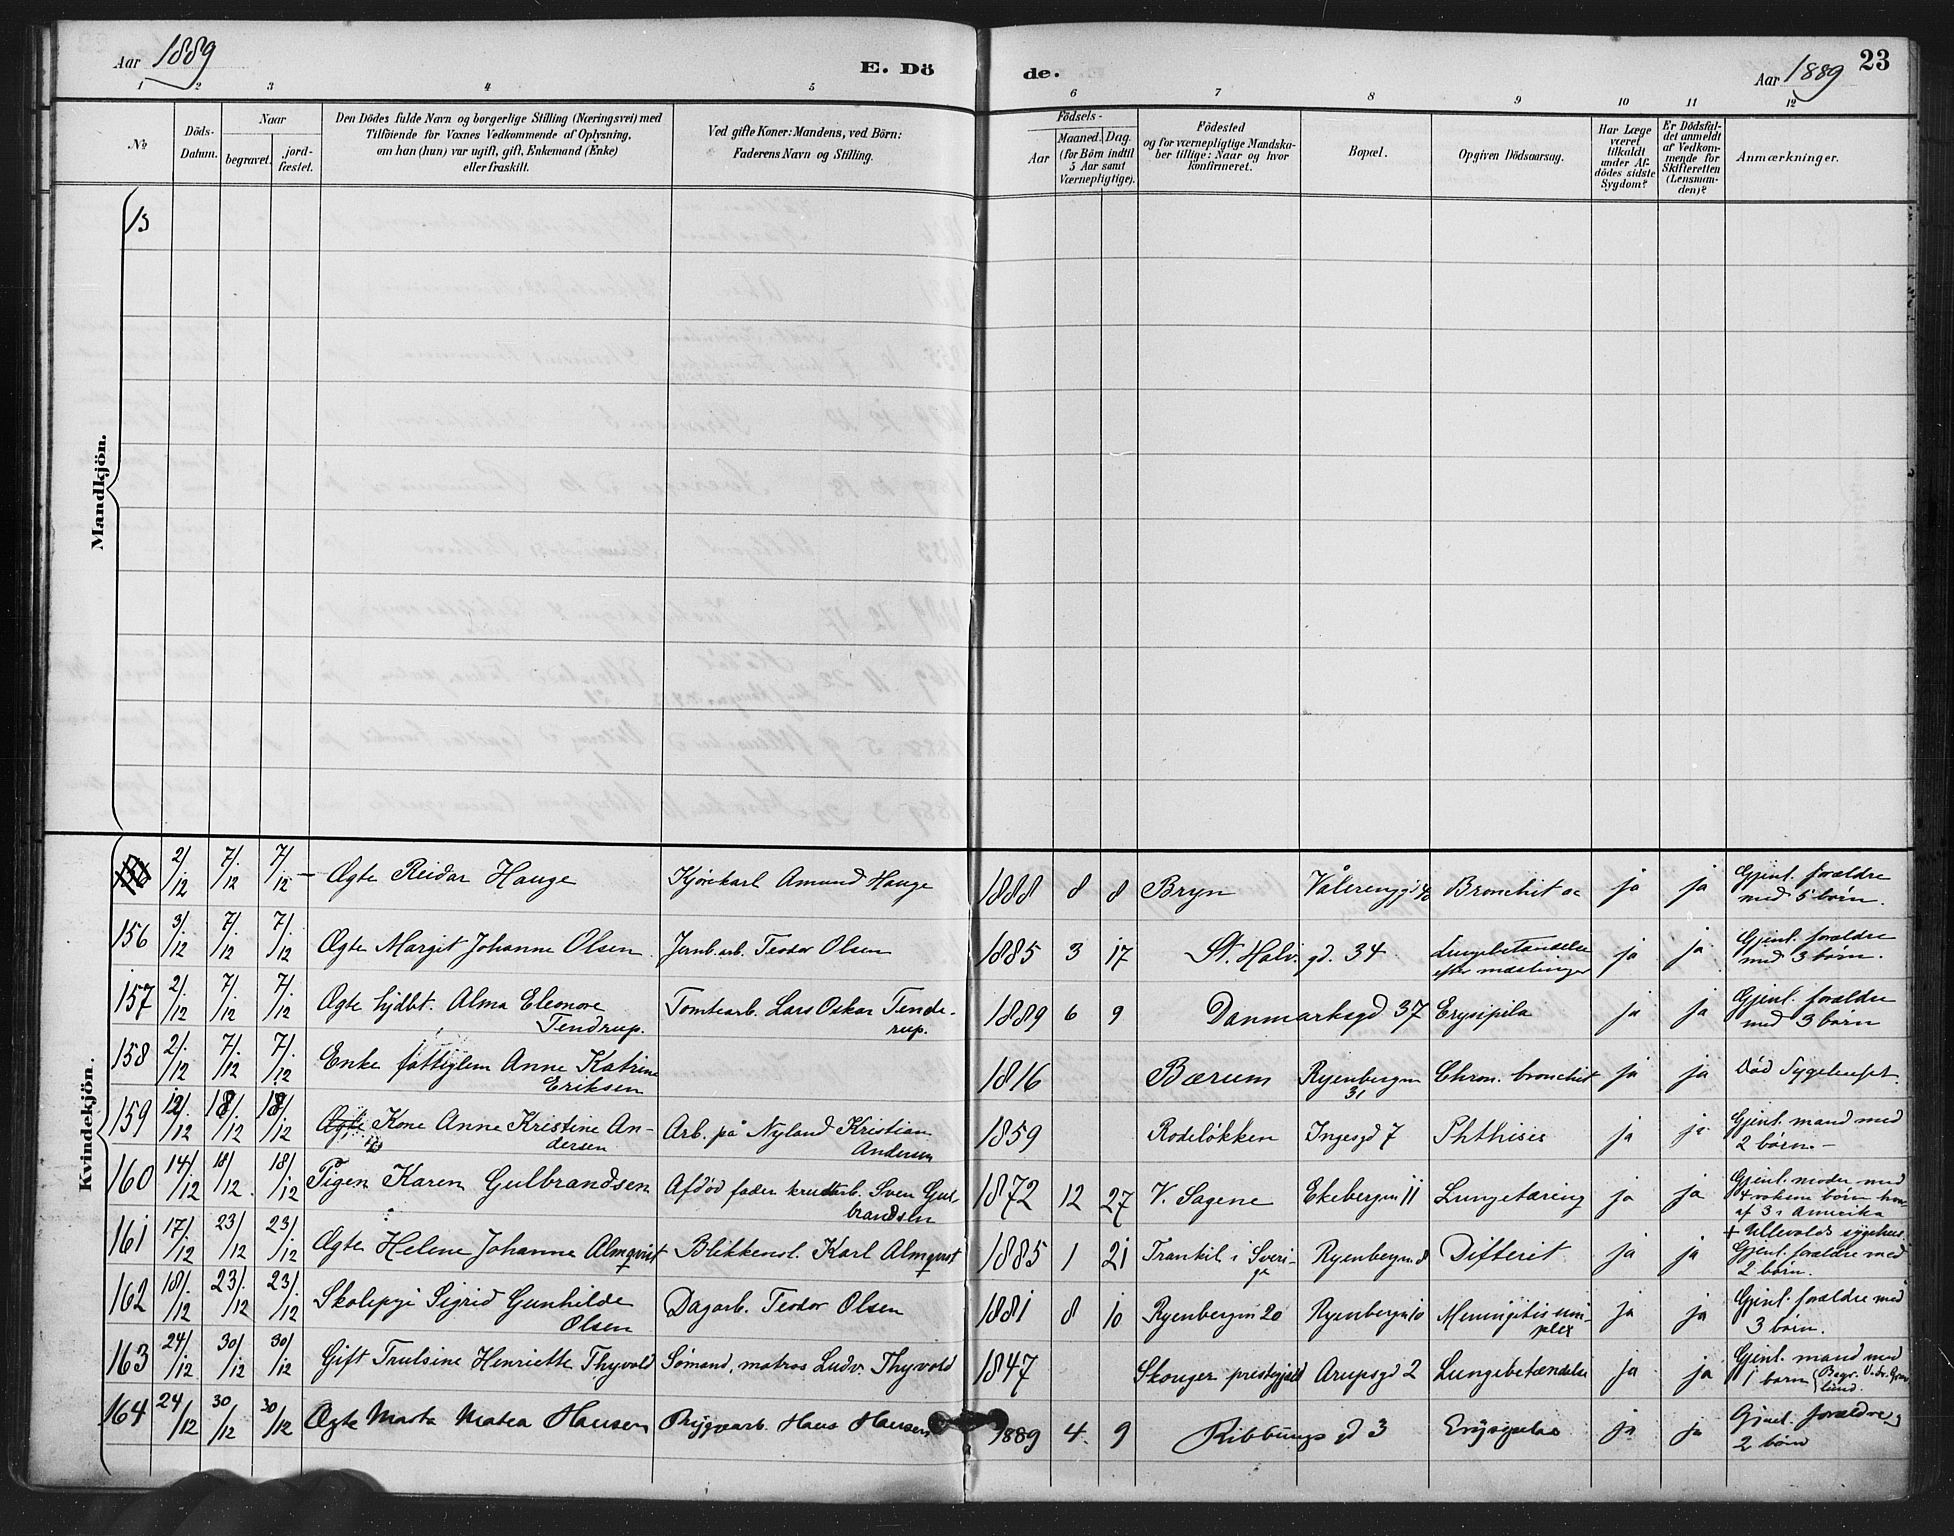 Aar 1889
E. Dö de.
Aar 1889 23
1 2 3 4 5 6 7 8 9 10 11 12
No
Döds-Datum.
Naar
begravet.
jord-fæstet.
Den Dödes fulde Navn og borgerlige Stilling (Næringsvei) med
Tilföiende for Voxnes Vedkommende af Oplysning,
om han (hun) var ugift, gift, Enkemand (Enke)
eller fraskilt.
Ved gifte Koner: Mandens, ved Börn:
Faderens Navn og Stilling.
Födsels-
Aar
Maaned. Dag.
(for Börn indtil
5 Aar samt
Værnepligtige).
Födested
og for værnepligtige Mandska-
ber tillige: Naar og hvor
konfirmeret.
Bopæl.
Opgiven Dödsaarsag.
Har Læge
været
tilkaldt
under Af-
dödes sidste
Sygdom?
Er Dödsfal-
det anmeldt
af Vedkom-
mende for
Skifteretten
(Lensman-
den)?
Anmærkninger.
Mandkjön.
Kvindekjön.
2/12 7/12 7/12 – Ægte Reidar Hauge Kjørekarl Amund Hauge 1888 8 8 Bryn Bronchit ac ja ja Gjenl. forældre
med 5 børn.
156 3/12 7/12 7/12 Ægte Margit Johanne Olsen Jernb.arb. Teodor Olsen 1885 3 17 St. Halv. gd. 34 Lungebetændelse ja ja Gjenl. forældre
efter mæslinger med 3 børn.
157 2/12 7/12 7/12 Ægte hjdbt. Alma Eleonore Tomtearb. Lars Oskar Tende- 1889 6 9 Danmarksgd 37 Erysipela ja ja Gjenl. forældre
Tendrup. rup. med 3 børn
158 2/12 7/12 7/12 Enke fattiglem Anne Katrine 1816 Bærum Ryenbergvn Chron. bronchit ja ja Død Sygehuset.
Eriksen 31
159 12/12 18/12 18/12 Ægte Kone Anne Kristine An- Arb. på Nyland Kristian 1859 Rodeløkken Ingesgd 7 Phthisis ja ja Gjenl. mand med
dersen Andersen 2 børn. –
160 14/12 18/12 18/12 Pigen Karen Gulbrandsen Afdød fader krudtarb. Sven Gul 1872 12 27 V. Sagene Ekebergvn 11 Lungetæring ja ja Gjenl. moder med
brandsen 4 voksne børn hvor
af 3 i Amerika
161 17/12 23/12 23/12 Ægte Helene Johanna Almqvist Blikkensl. Karl Almqvist 1885 1 21 Trankil i Sveri- Ryenbergvn 8 Difterit ja ja + Ullevolds sygehus.
ge Gjenl. forældre med
2 børn.
162 18/12 23/12 23/12 Skolepige Sigrid Gunhilde Dagarb. Teodor Olsen 1881 8 10 Ryenbergvn 20 Ryenbergvn 10 Meningitis sim- ja ja Gjenl. forældre med
Olsen plex 3 børn.
163 24/12 30/12 30/12 Gift Trulsine Henriette Thyvold Sømand, matros Ludv. Thyvold 1847 Skouger prestegjeld Arupsgd 2 Lungebetændelse ja ja Gjenl. mand med
1 barn
164 24/12 30/12 30/12 Ægte Marta Matea Hansen Bryggearb. Hans Hansen 1889 4 9 Ribbungs gd 3 Erysipelas ja ja Gjenl. forældre
2 børn